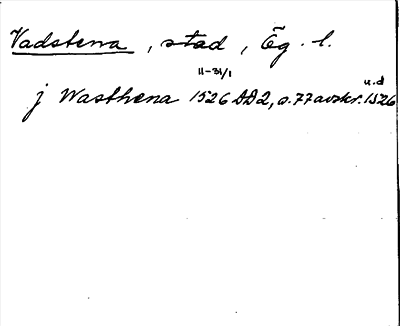 Vadstena, stad, Ög. l.
11-31/1
j Wasthena 1526 DD2, s. 77 avskr. 1526
u.d